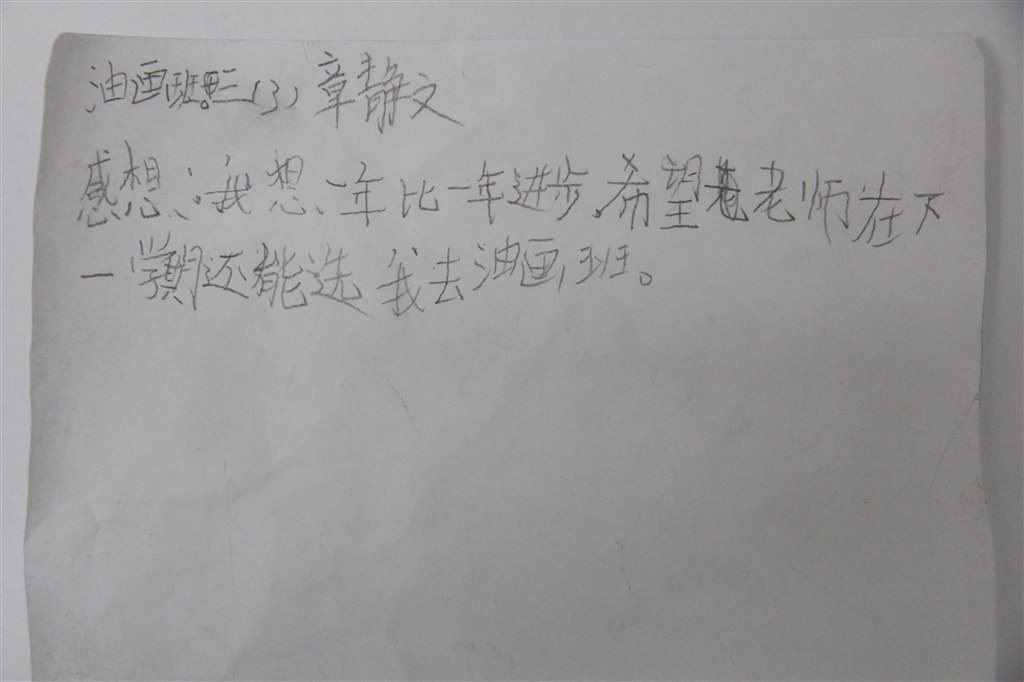 油画班。三(3) 章静文
感想:我想、一年比一年进步。希望老师在下
一学期还能选我去油画班。